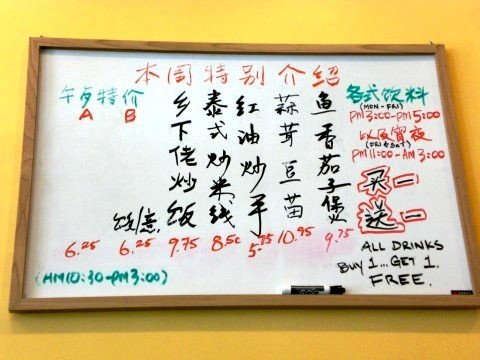 本周特别介绍
午歺特价
A B
6.25
6.25
(AM10:30-PM3:00)
乡下佬炒饭
9.75
泰式炒米线
8.50
红油炒手
5.75
蒜芽豆苗
10.95
鱼香茄子煲
9.75
各式饮料
(MON-FRI)
PM3:00-PM5:00
以及宵夜
(FRI&SAT)
PM11:00-AM3:00
买一
送一
ALL DRINKS
BUY 1...GET 1.
FREE.